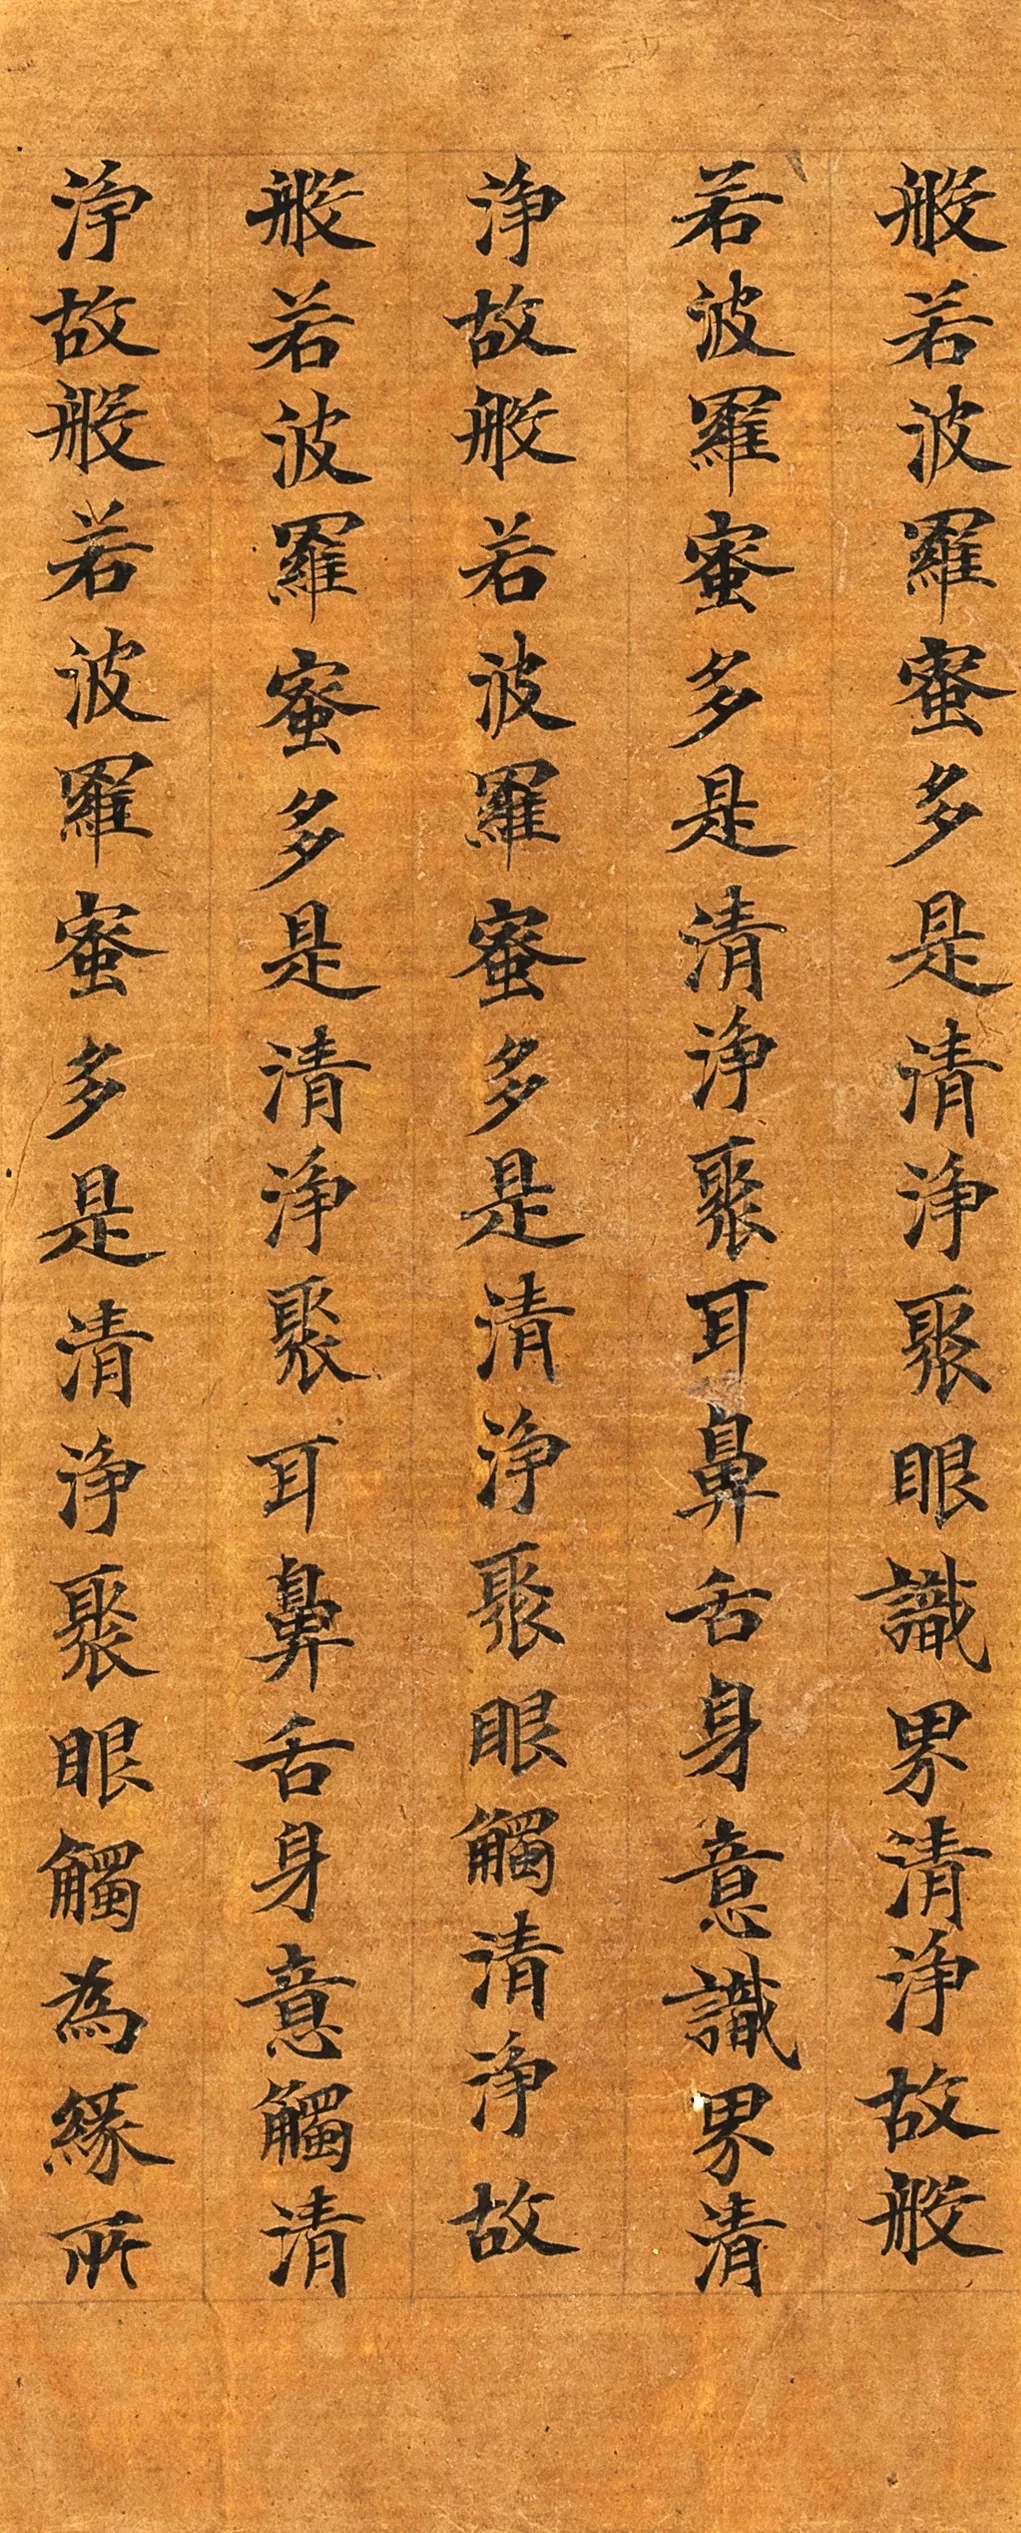 般若波羅蜜多是清淨聚眼識界清淨故般
若波羅蜜多是清淨聚耳鼻舌身意識界清
淨故般若波羅蜜多是清淨聚眼觸清淨故
般若波羅蜜多是清淨聚耳鼻舌身意觸清
淨故般若波羅蜜多是清淨聚眼觸為緣所